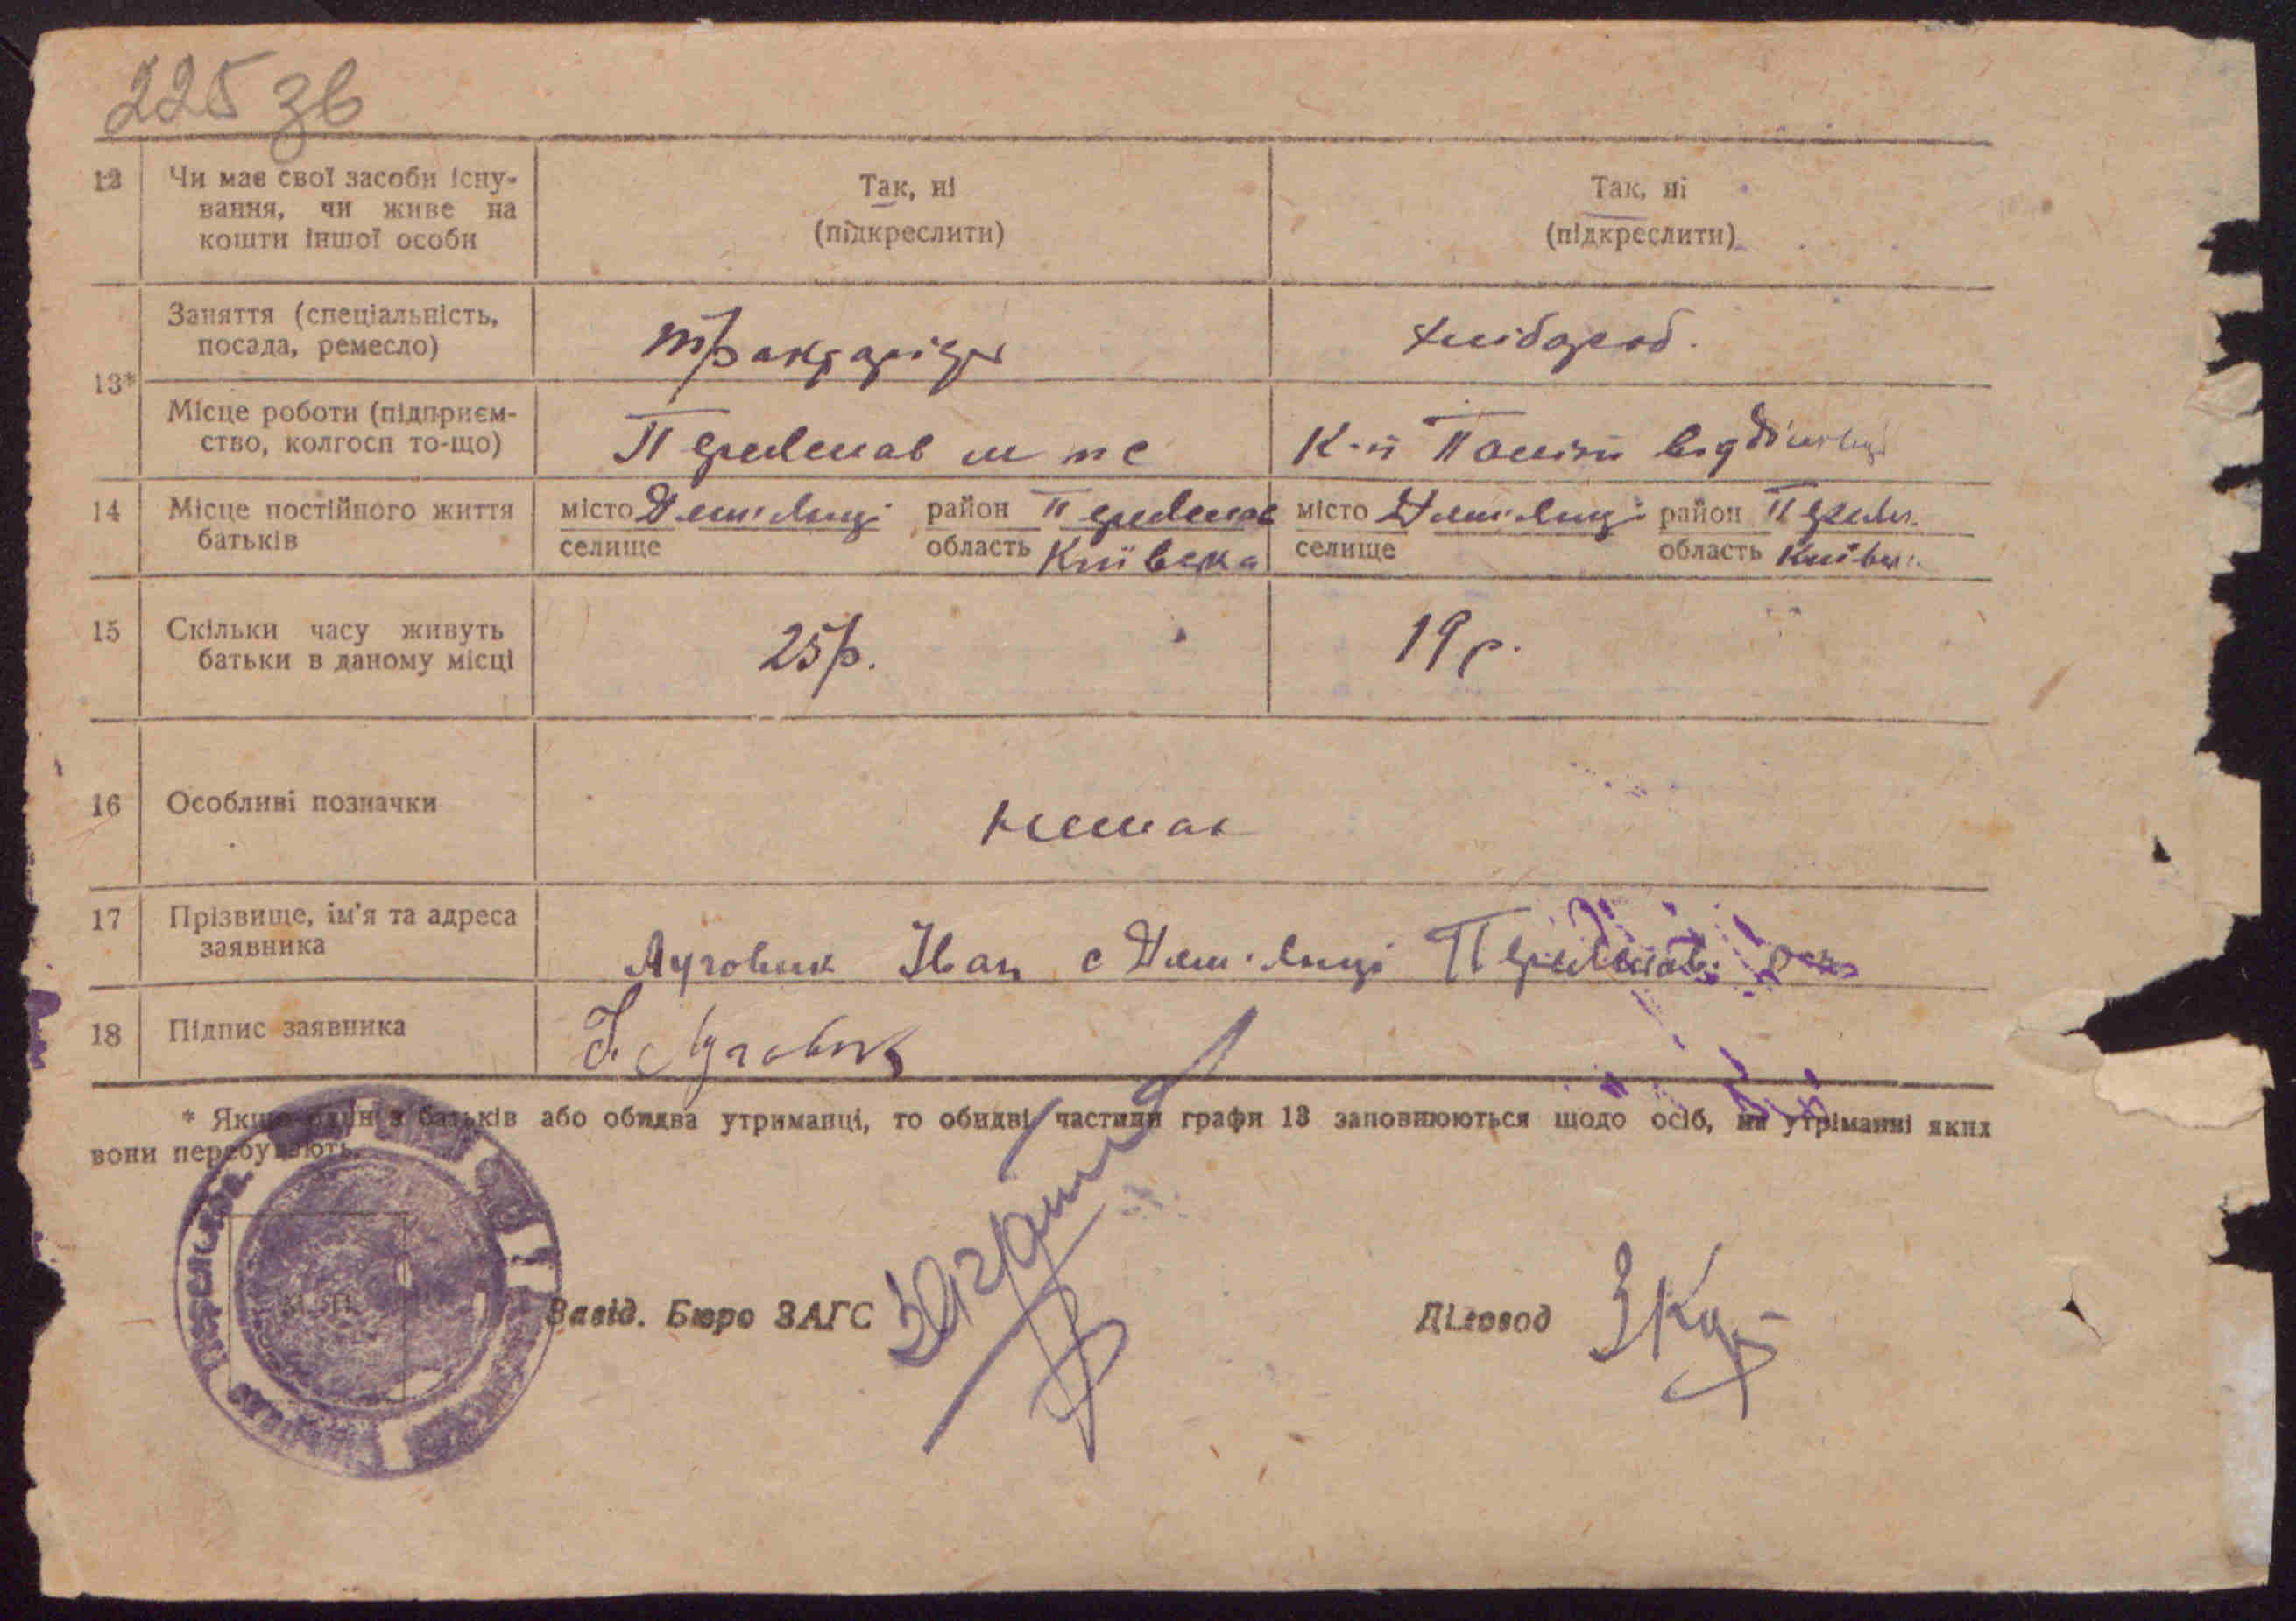 225 зв
12 Чи має свої засоби існу-
вання, чи живе на
кошти іншої особи
Так, ні
(підкреслити)
Так, ні
(підкреслити)
13*
Заняття (спеціальність,
посада, ремесло)
хлібороб.
Місце роботи (підприєм-
ство, колгосп то-що)
Переяслав м т с
14 Місце постійного життя
батьків
місто Дем'янці район Переяслав
селище область Київська
місто Дем'янці район Переясл.
селище область Київськ.
15 Скільки часу живуть
батьки в даному місці
25 р.
19 р.
16 Особливі позначки
немає
17 Прізвище, ім'я та адреса
заявника
Луговик Іван с Дем'янці Переяслав. рай
18 Підпис заявника
І. Луговик
* Якщо один з батьків або обидва утриманці, то обидві частини графи 13 заповнюються щодо осіб, на утріманні яких
вони перебувають.
М. П.
Завід. Бюро ЗАГС
Діловод